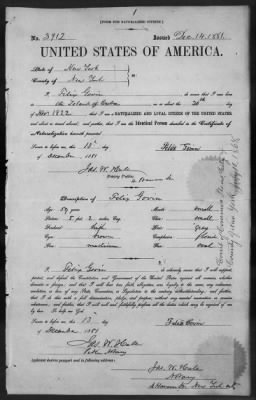 [FORM FOR NATURALIZED CITIZEN.]
No. 3912 Issued Dec. 14, 1881.
UNITED STATES OF AMERICA.
State of New York
County of New York
I, Felix Govin do swear that I was born
in the Island of Cuba on the 20th day
of Nov. 1822; that I am a NATURALIZED AND LOYAL CITIZEN OF THE UNITED STATES
and about to travel abroad; and that I am the Identical Person described in the Certificate of
Naturalization herewith presented.
Sworn to before me, this 13th
day of December 1881 Felix Govin
Jas. W. Hale
Notary Public
Description of Felix Govin
Age: 59 years Mouth: small
Stature: 5 feet 2 inches, Eng. Chin: small
Forehead: high Hair: gray
Eyes: brown Complexion: florid
Nose: medium Face: oval
I, Felix Govin do solemnly swear that I will support,
protect, and defend the Constitution and Government of the United States against all enemies, whether
domestic or foreign; and that I will bear true faith, allegiance, and loyalty to the same, any ordinance,
resolution or law of any State Convention or Legislature to the contrary notwithstanding; and further,
that I do this with a full determination, pledge, and purpose, without any mental reservation or evasion
whatsoever; and further, that I will well and faithfully perform all the duties which may be required of me
by law: So help me God.
Sworn to before me, this 13
day of December 1881 Felix Govin
Jas W Hale
Notary
Applicant desires passport sent to following address:
Jas. W. Hale
Notary
New York